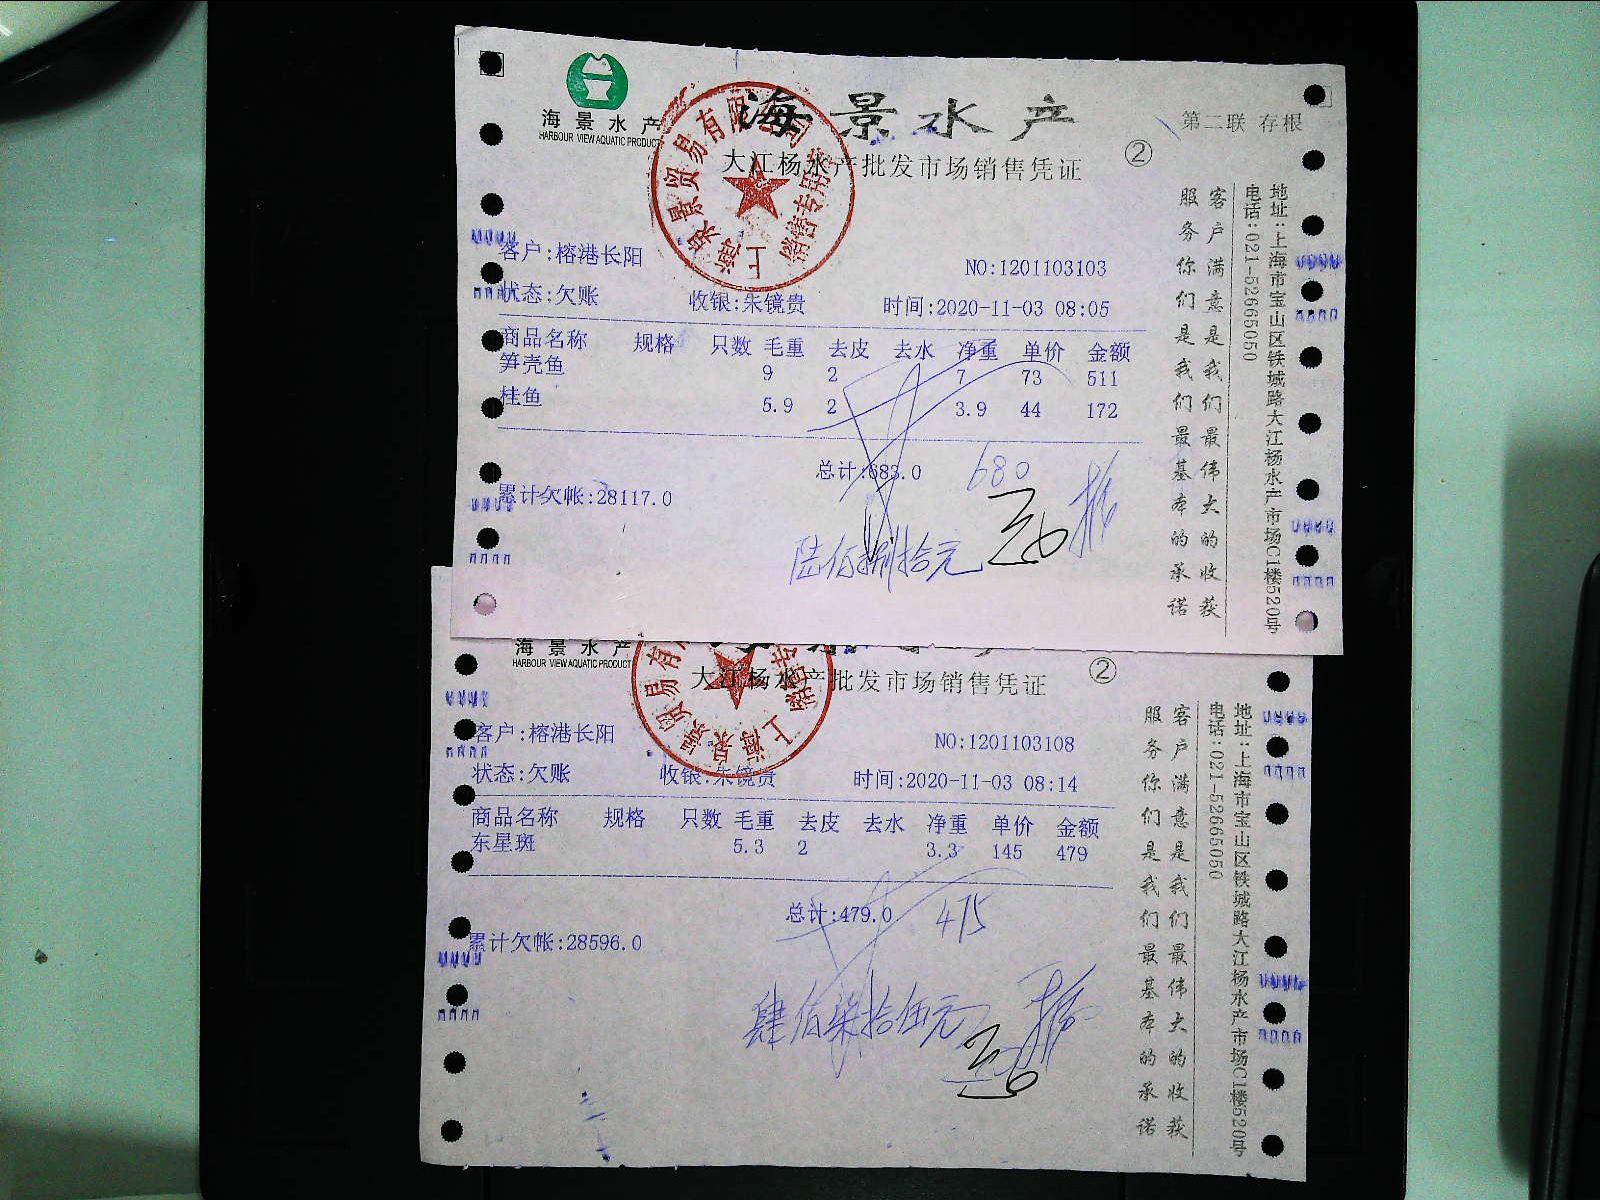 海景水产
HARBOUR VIEW AQUATIC PRODUCT
海景水产
第二联 存根
大江杨水产批发市场销售凭证 ②
上海泉景贸易有限公司
销售专用章
客户:榕港长阳 NO:1201103103
状态:欠账 收银:朱镜贵 时间:2020-11-03 08:05
商品名称 规格 只数 毛重 去皮 去水 净重 单价 金额
笋壳鱼 9 2 7 73 511
桂鱼 5.9 2 3.9 44 172
总计:683.0 680
累计欠帐:28117.0
陆佰捌拾元
客户满意是我们最伟大的收获
服务你们是我们最基本的承诺
地址:上海市宝山区铁城路大江杨水产市场C1楼520号
电话:021-52665050
海景水产
HARBOUR VIEW AQUATIC PRODUCT
大江杨水产批发市场销售凭证 ②
客户:榕港长阳 NO:1201103108
状态:欠账 收银:朱镜贵 时间:2020-11-03 08:14
商品名称 规格 只数 毛重 去皮 去水 净重 单价 金额
东星斑 5.3 2 3.3 145 479
总计:479.0 475
累计欠帐:28596.0
肆佰柒拾伍元
客户满意是我们最伟大的收获
服务你们是我们最基本的承诺
地址:上海市宝山区铁城路大江杨水产市场C1楼520号
电话:021-52665050